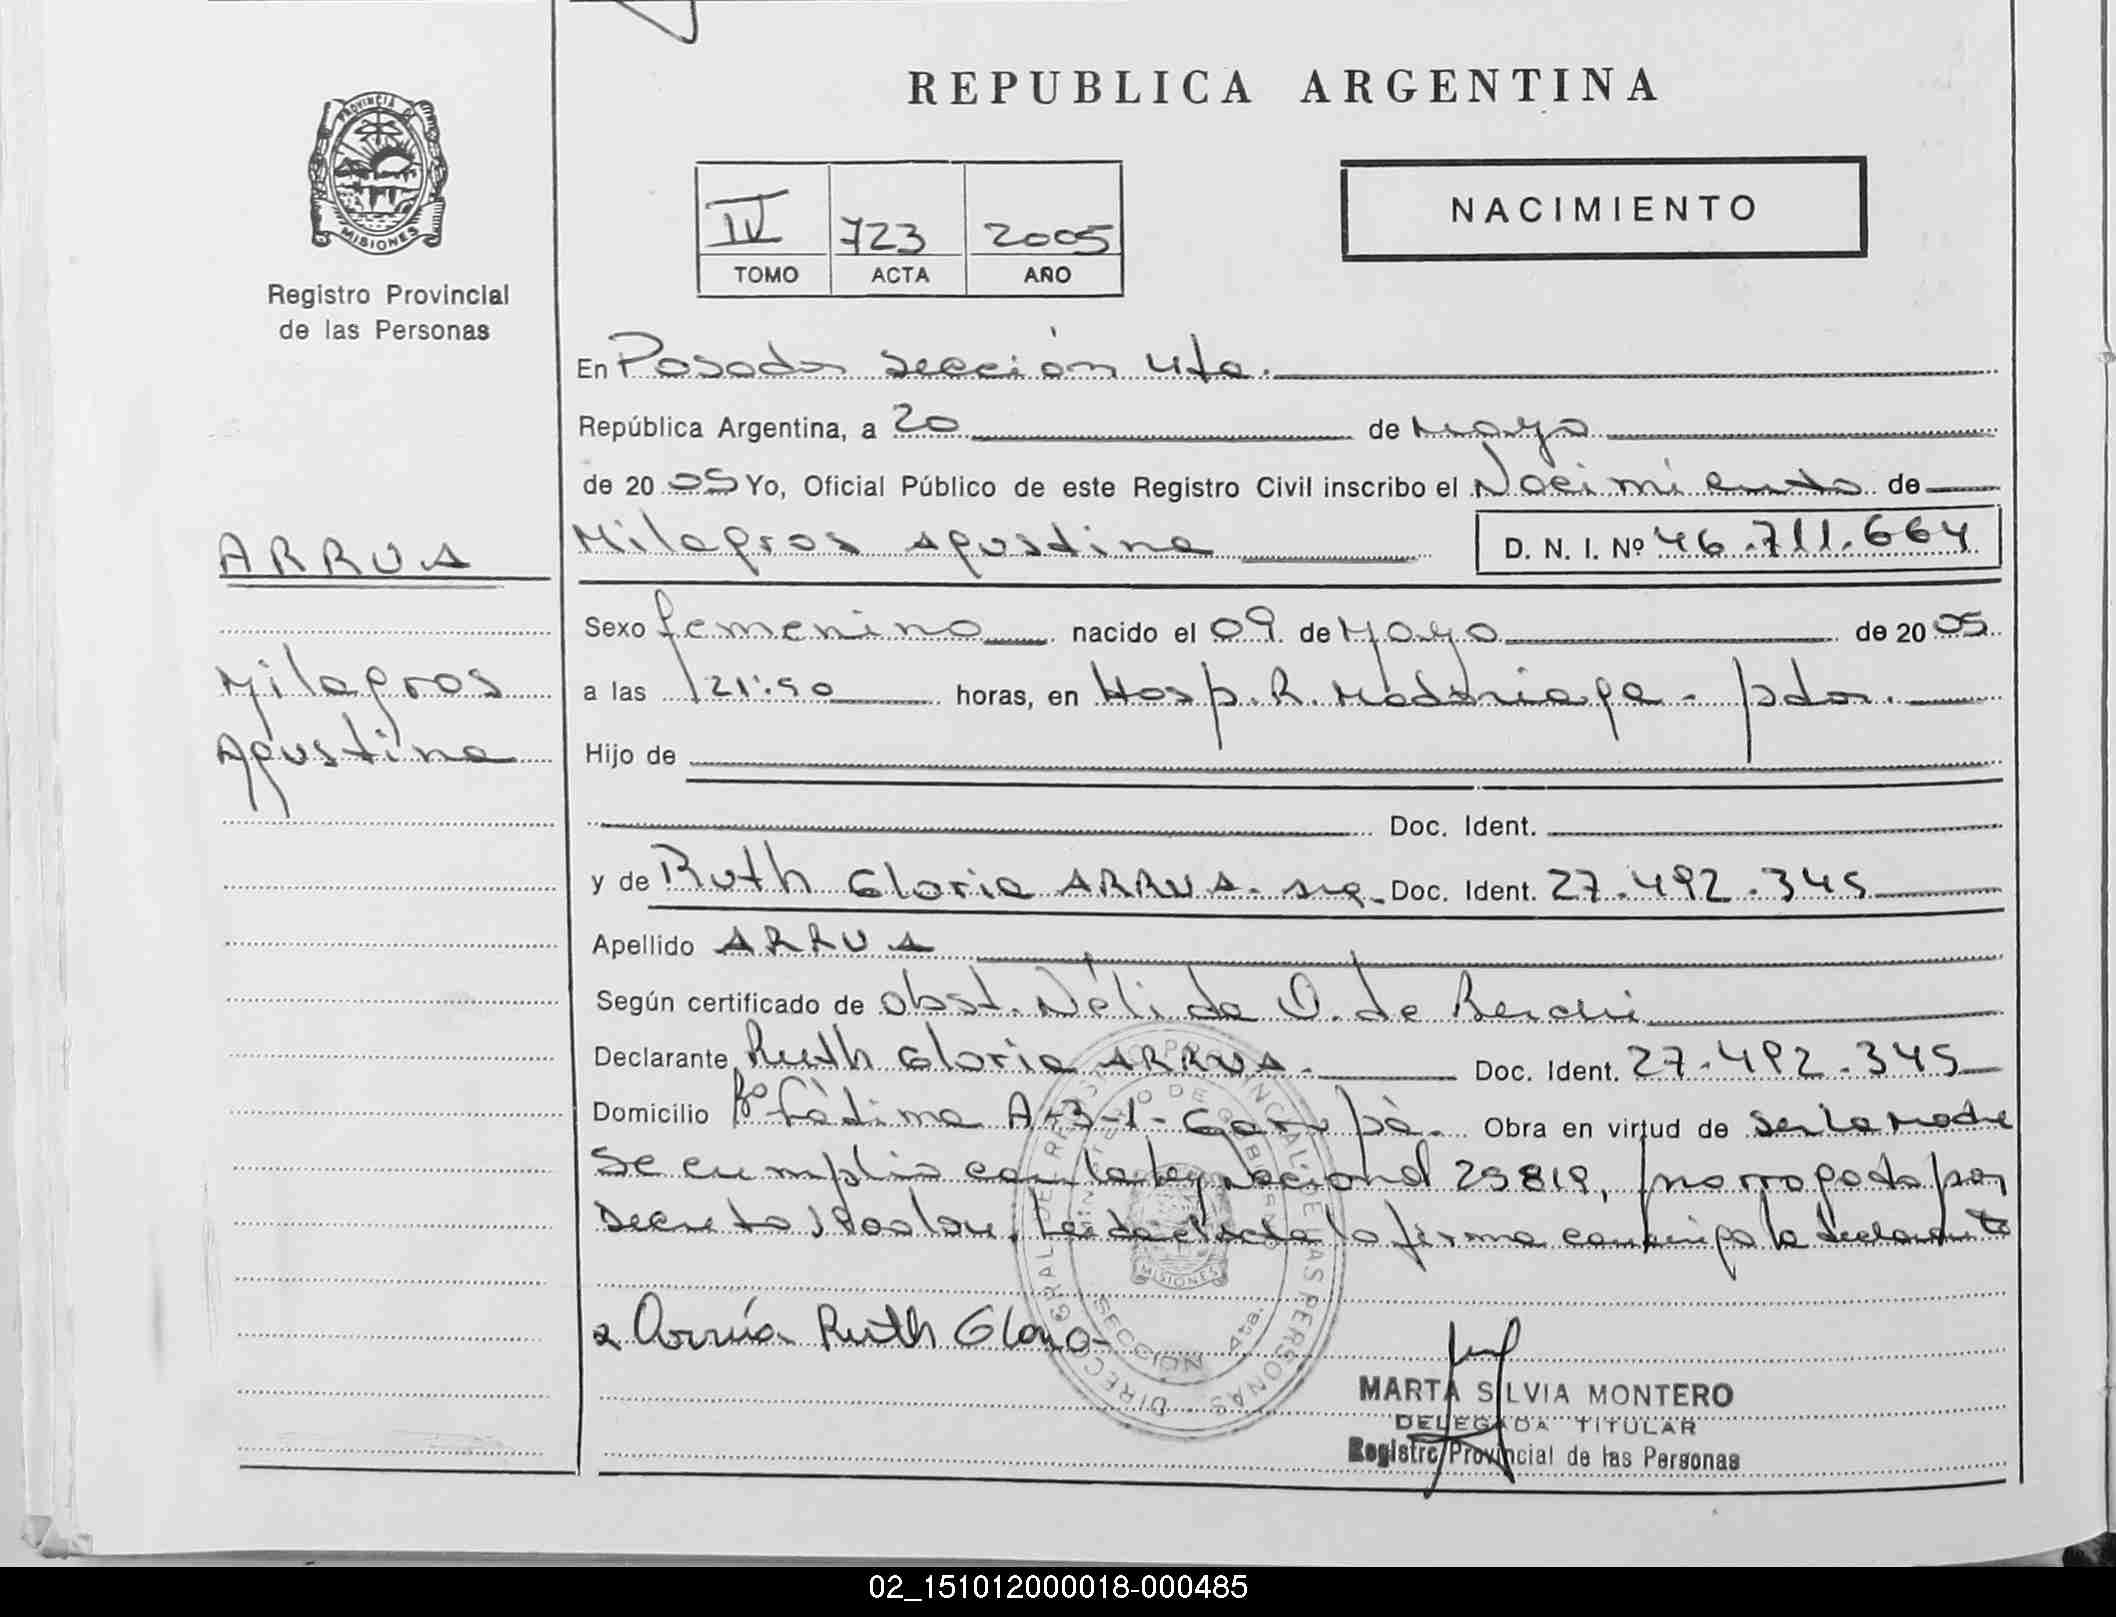 REPUBLICA ARGENTINA
PROVINCIA DE
MISIONES
Registro Provincial
de las Personas
NACIMIENTO
IV 723 2005
TOMO ACTA AÑO
En Posadas sección 4ta.
República Argentina, a 20 de Mayo
de 2005 Yo, Oficial Público de este Registro Civil inscribo el Nacimiento de
Milagros Agustina D. N. I. Nº 46.711.664
ARRUA
Milagros
Agustina
Sexo femenino nacido el 09 de Mayo de 2005
a las 21:50 horas, en Hosp. R. Madariaga - pdas.
Hijo de
Doc. Ident.
y de Ruth Gloria ARRUA. arg. Doc. Ident. 27.492.345
Apellido ARRUA
Según certificado de obst. Nélida O. de
Declarante Ruth Gloria ARRUA. Doc. Ident. 27.492.345
Domicilio Bº Fátima A-3-1- Garupá. Obra en virtud de ser la madre
Se cumplió con la ley nacional 25819, prorrogada por
Decreto Leída el acta la firma conmigo la declarante
Arrúa Ruth Gloria
DIRECC. GRAL DE REGISTRO PROVINCIAL DE LAS PERSONAS
MINISTERIO DE GOBIERNO
MISIONES
SECCIÓN 4ta.
MARTA SILVIA MONTERO
DELEGADA TITULAR
Registro Provincial de las Personas
02_151012000018-000485